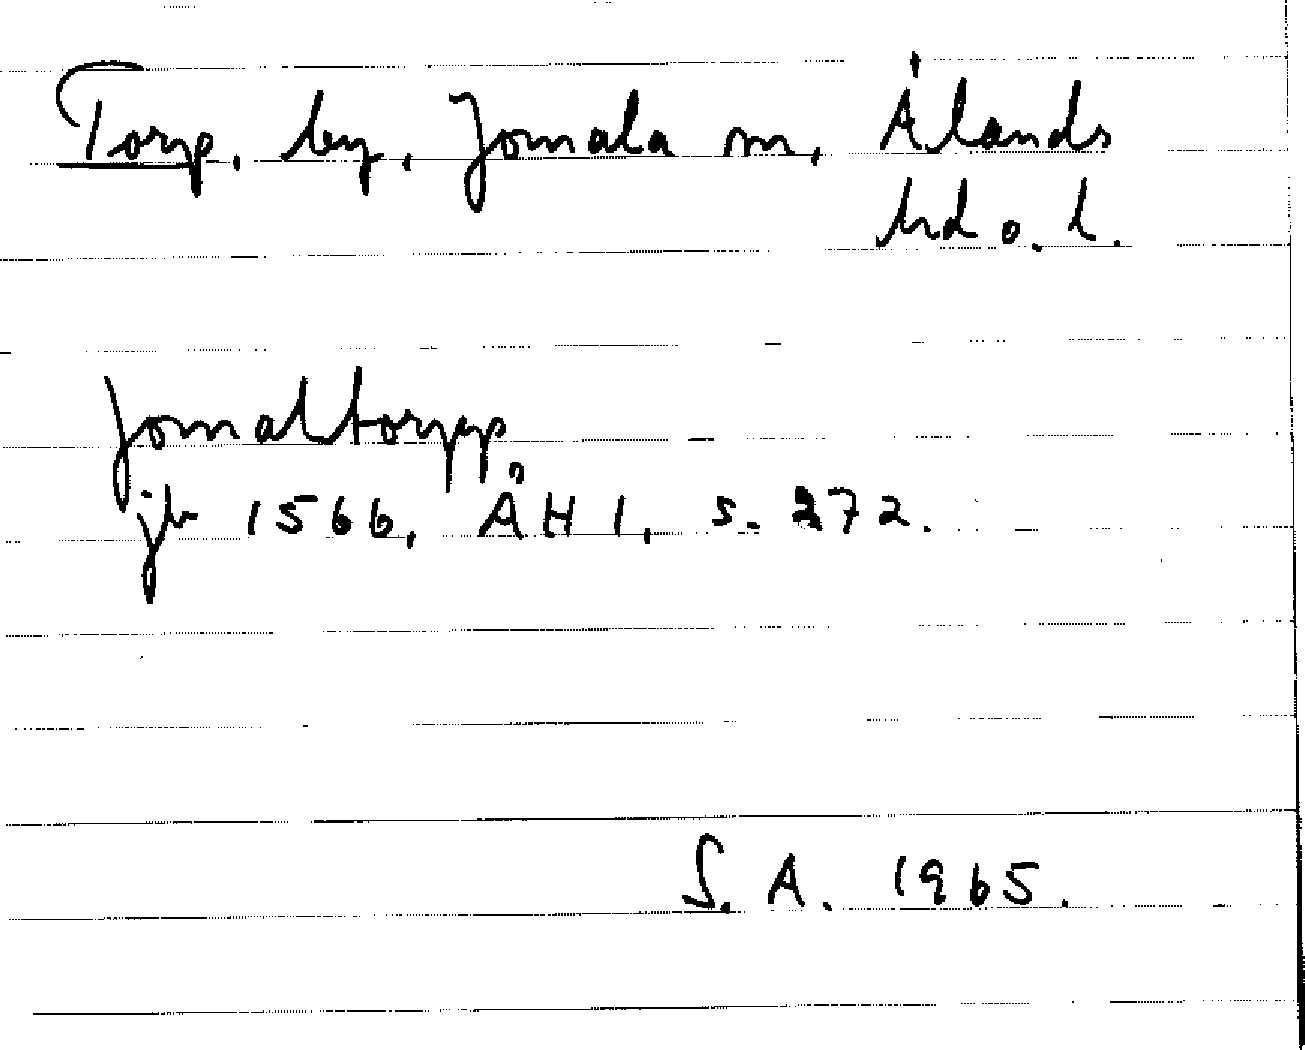 Torp, by, Jomala sn, Ålands
hd o. l.
Jomaltorpp
jb 1566, ÅH 1, s. 272.
S. A. 1965.